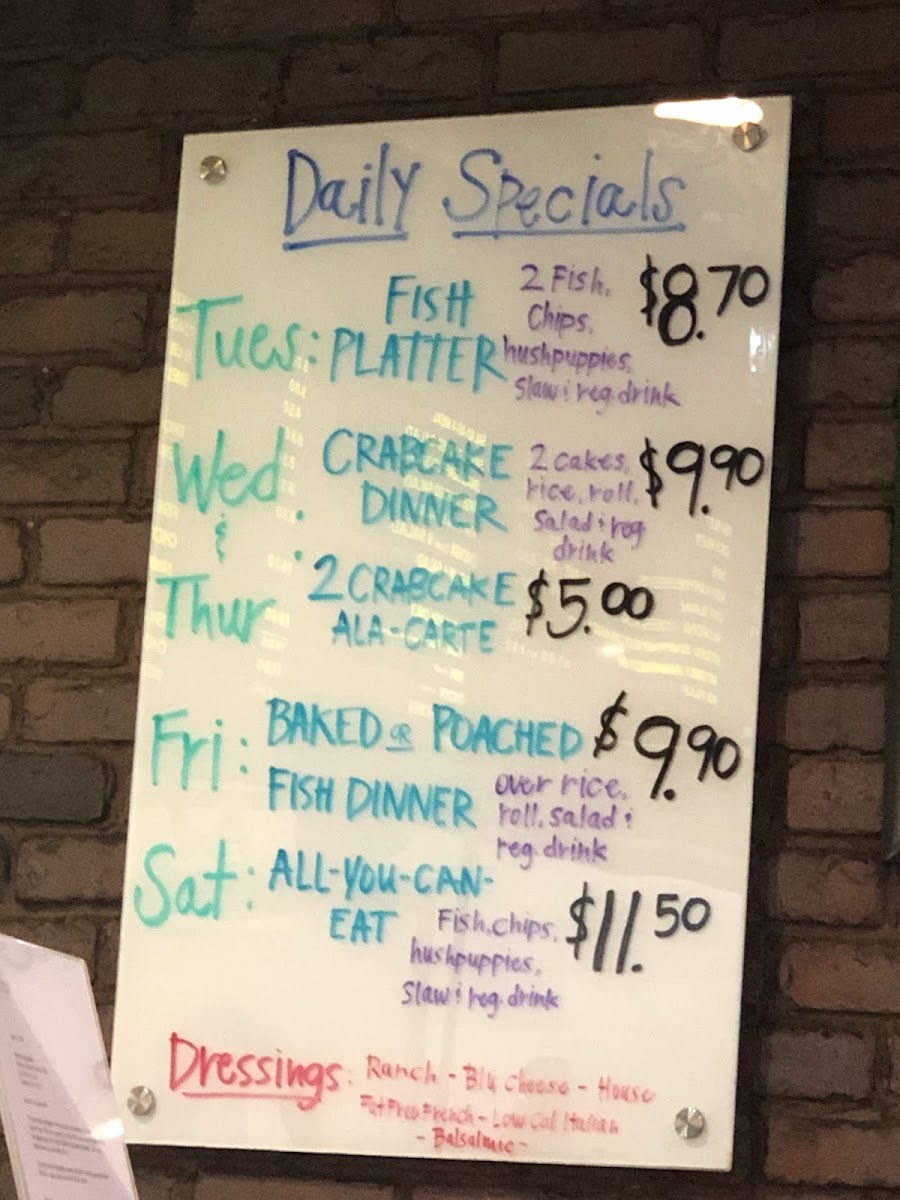 Daily Specials
Tues: FISH PLATTER
2 Fish,
Chips,
hushpuppies,
Slaw & reg. drink
$8.70
Wed & Thur :
CRABCAKE DINNER
2 cakes,
rice, roll,
Salad & reg
drink
$9.90
2 CRABCAKE
ALA-CARTE
$5.00
Fri: BAKED OR POACHED
FISH DINNER
over rice,
roll, salad &
reg. drink
$9.90
Sat: ALL-YOU-CAN-
EAT
Fish, chips,
hushpuppies,
Slaw & reg. drink
$11.50
Dressings: Ranch - Blu Cheese - House
Fat Free French - Low Cal Italian
- Balsalmic -